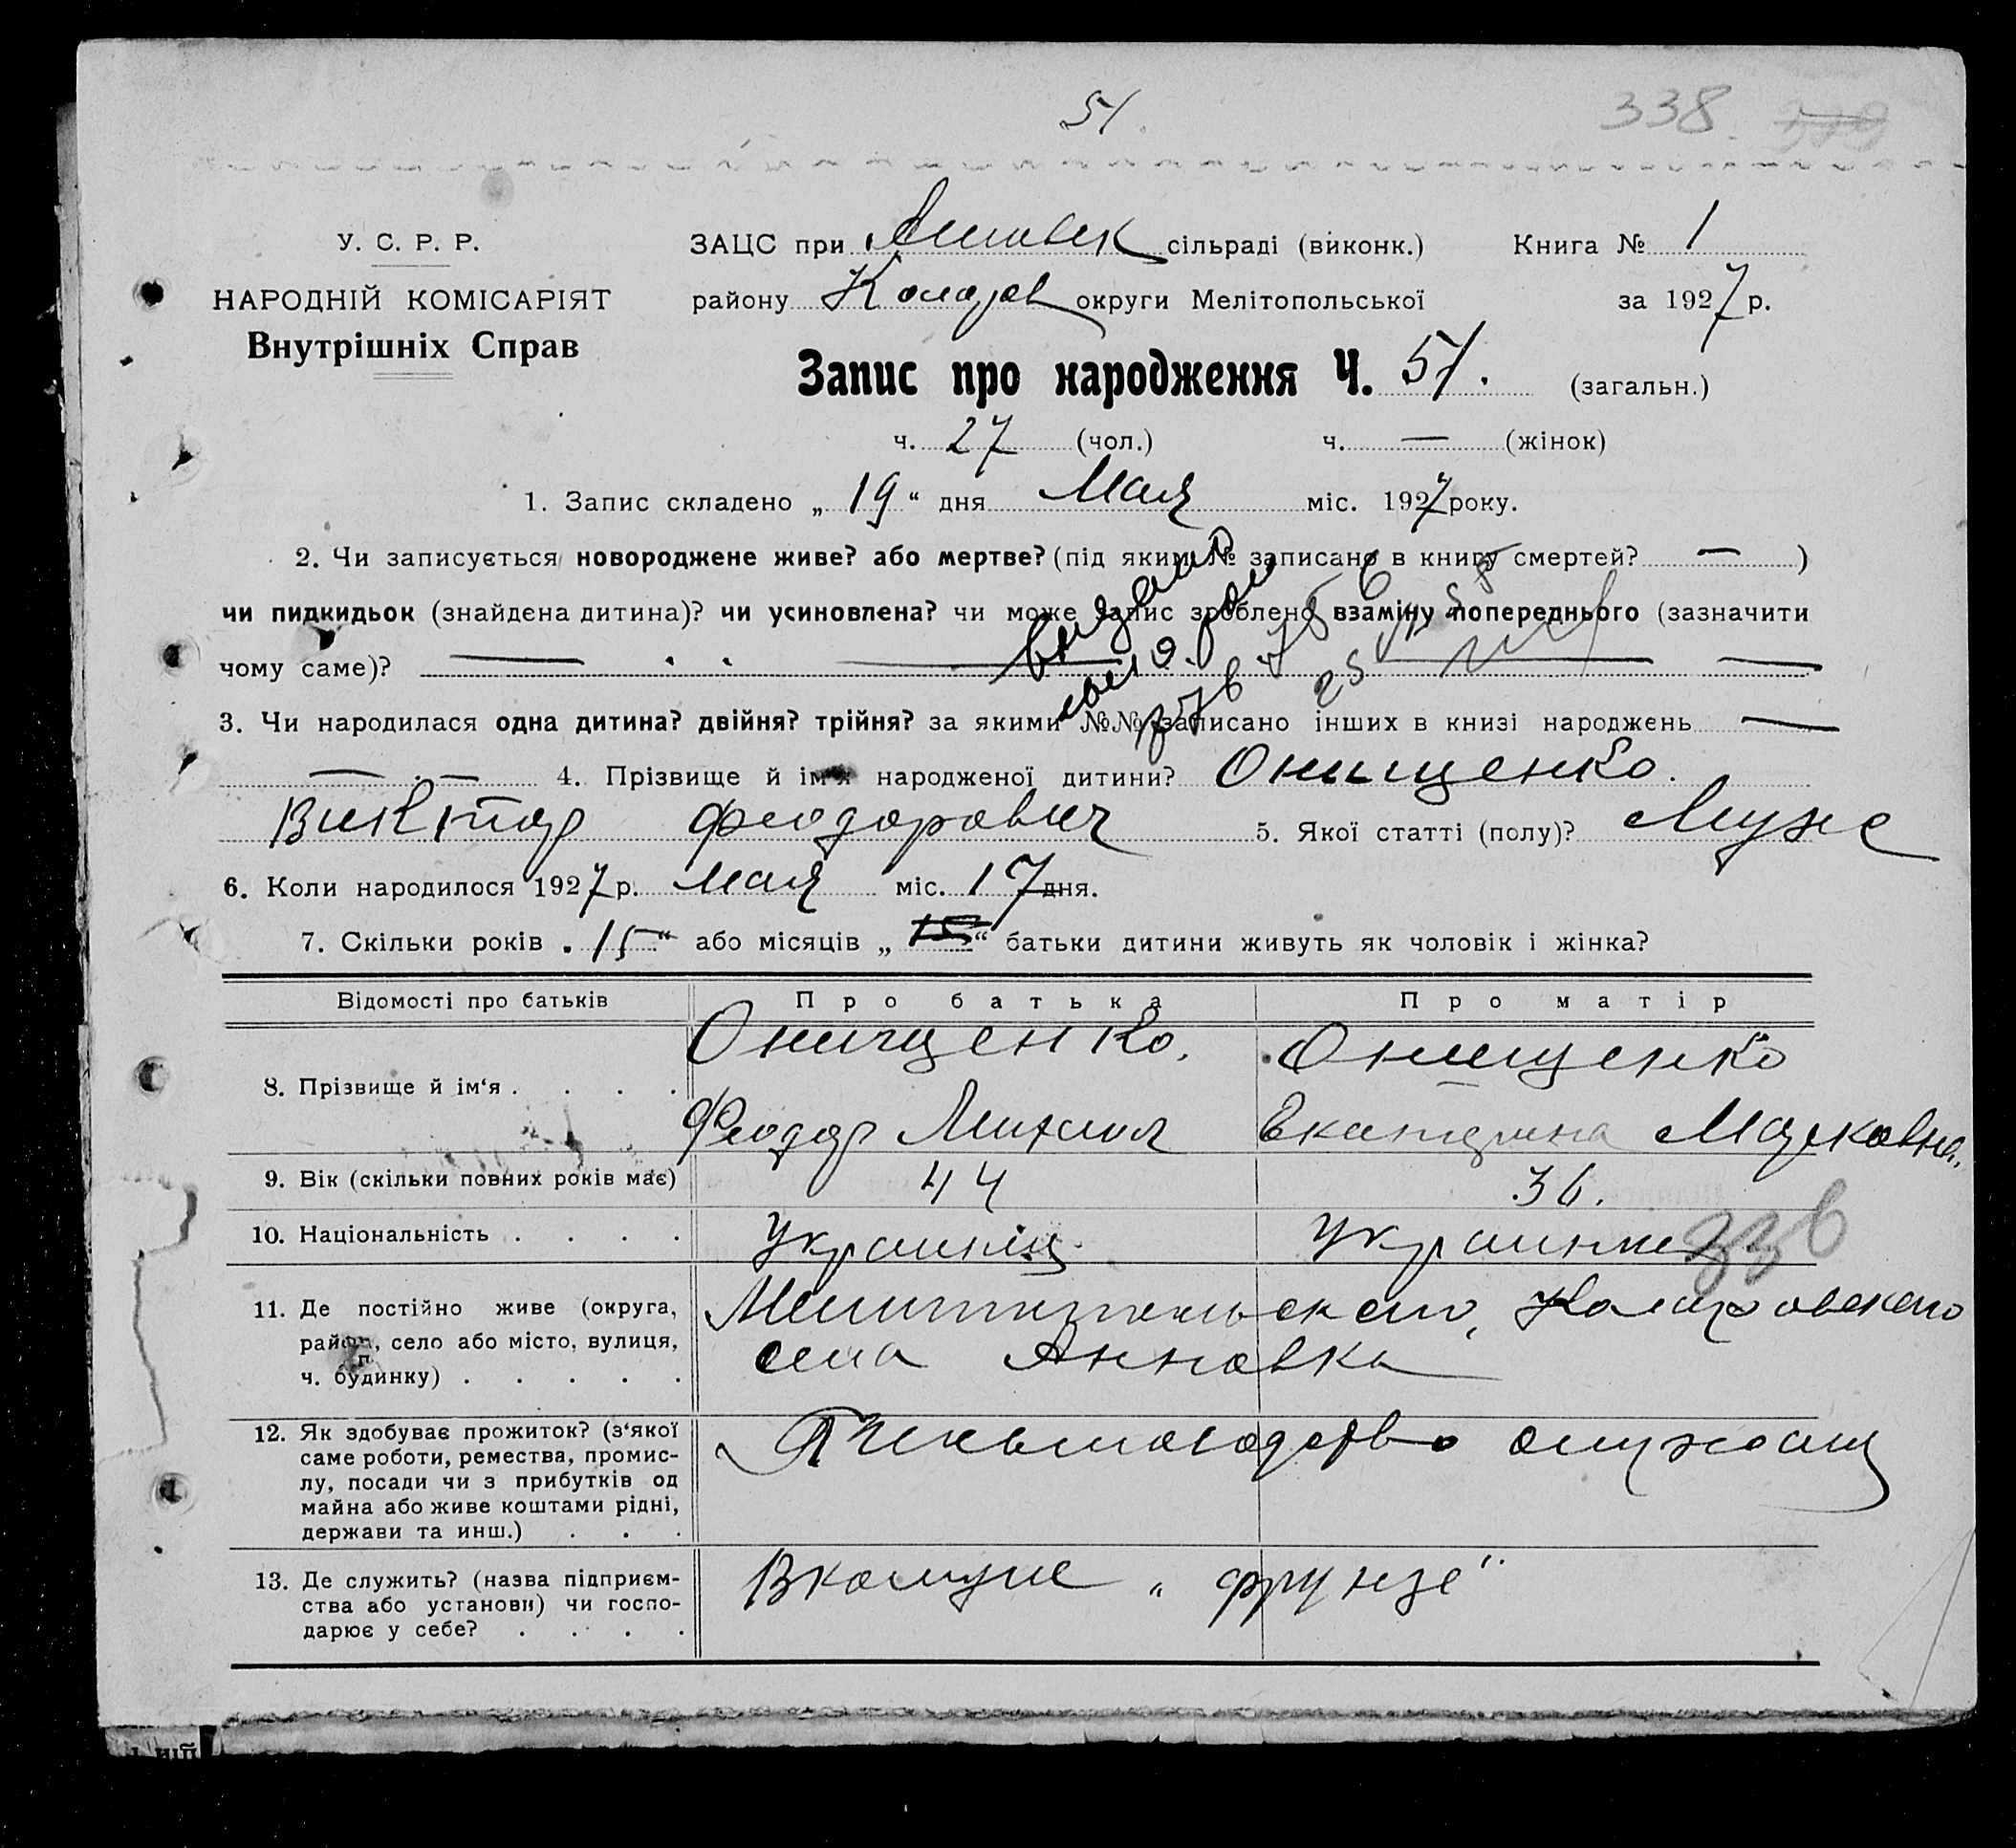 51.
338.
У. С. Р. Р.
НАРОДНІЙ КОМІСАРІЯТ
Внутрішніх Справ
ЗАЦС при сільраді (виконк.) Книга № 1
району округи Мелітопольської за 1927 р.
Запис про народження Ч. 51. (загальн.)
ч. 27 (чол.) ч. — (жінок)
1. Запис складено „ 19 “ дня Мая міс. 1927 року.
2. Чи записується новороджене живе? або мертве? (під яким № записано в книгу смертей? — )
чи пидкидьок (знайдена дитина)? чи усиновлена? чи може запис зроблено взаміну попереднього (зазначити
чому саме)?
3. Чи народилася одна дитина? двійня? трійня? за якими №№ записано інших в книзі народжень —
— . — 4. Прізвище й ім'я народженої дитини? Онищенко.
Виктор Феодорович 5. Якої статті (полу)? Муже
6. Коли народилося 1927 р. мая міс. 17 дня.
7. Скільки років „ 15 “ або місяців „ 15 “ батьки дитини живуть як чоловік і жінка?
Відомості про батьків Про батька Про матір
8. Прізвище й ім‘я . . . . Онищенко. Онищенко
Феодор Михаил Екатерина Марковна.
9. Вік (скільки повних років має) 44 36.
10. Національність . . . . Украинец Украинка
336
11. Де постійно живе (округа,
район, село або місто, вулиця,
ч. будинку) . . . . .
села Анновка
12. Як здобуває прожиток? (з‘якої
саме роботи, ремества, промис-
лу, посади чи з прибутків од
майна або живе коштами рідні,
держави та инш.) . . .
13. Де служить? (назва підприєм-
ства або установи) чи госпо-
дарює у себе? . . . .
В комуне „ Фрунзе"